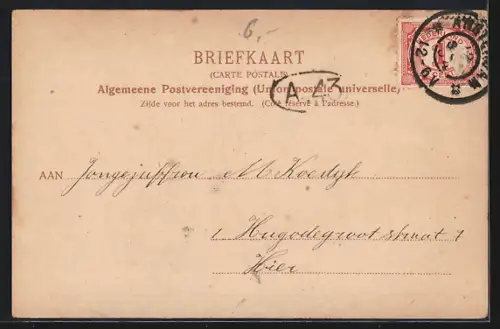 6,-
BRIEFKAART
(CARTE POSTALE)
Algemeene Postvereeniging (Union postale universelle)
Zijde voor het adres bestemd. (Côté réservé à l'adresse.)
A 43
AMSTERDAM
AAN Jongejuffrou M Koedijk
1 Hugodegroot straat 7
Hier